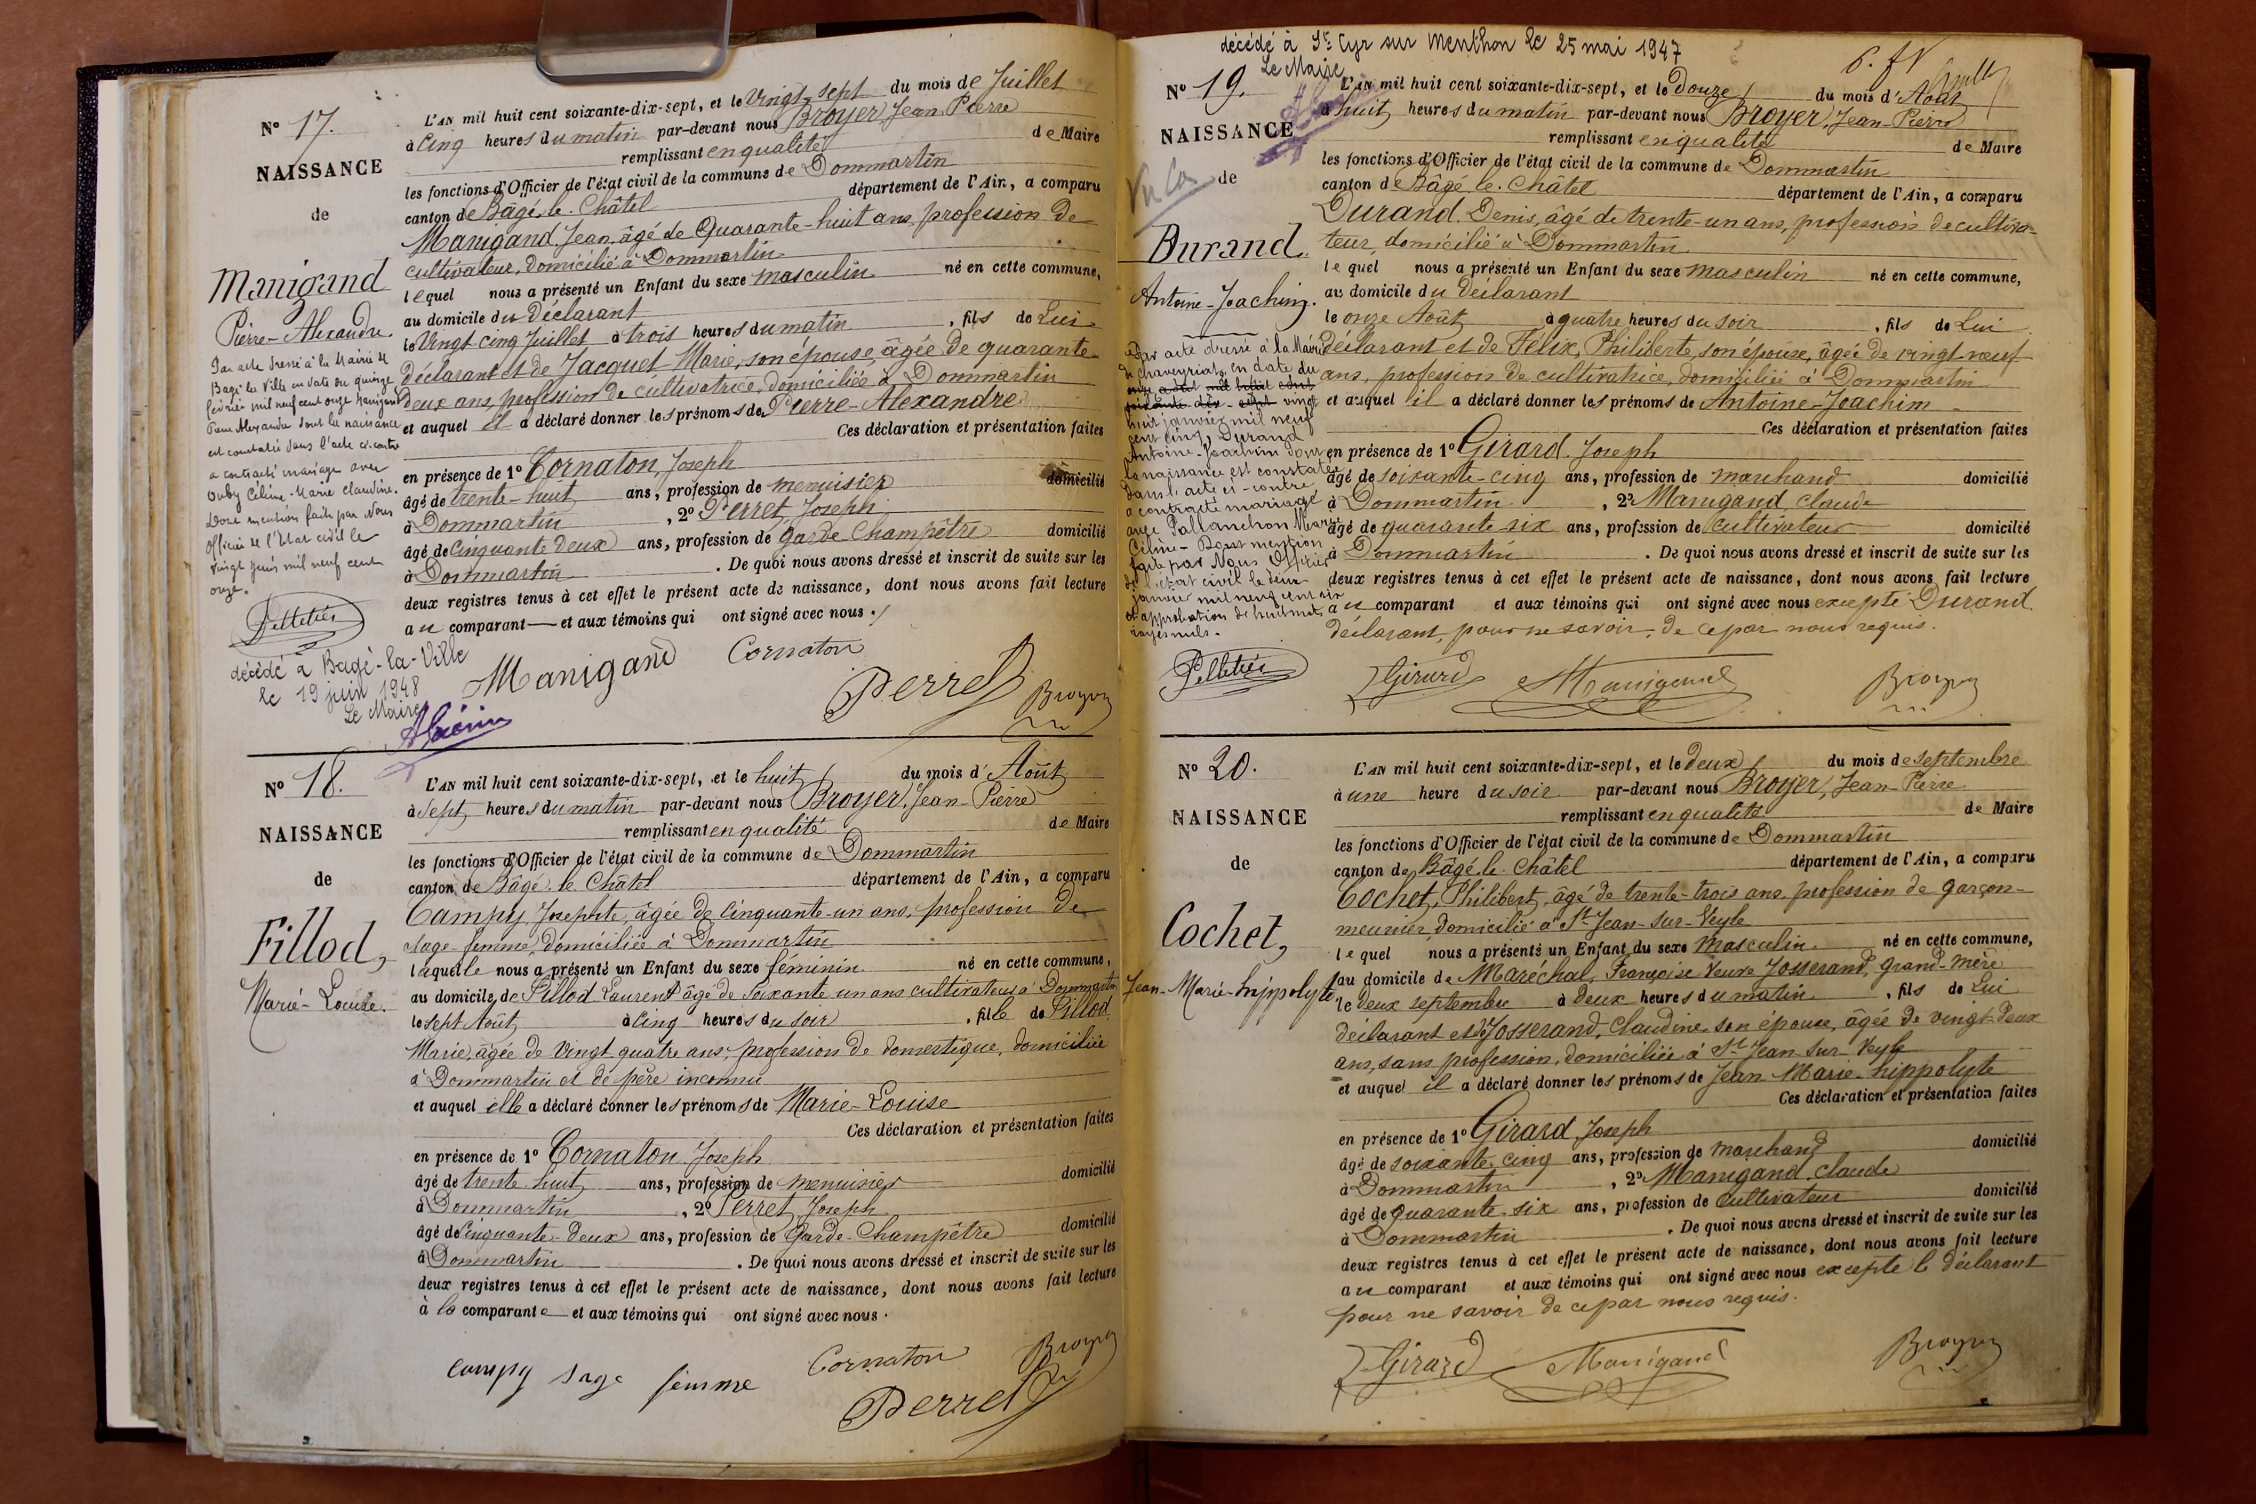 Nº 17.
NAISSANCE
de
Manigand
Pierre-Alexandre.
Par acte dressé à la Mairie de
Bagé la Ville en date du quinze
février mil neuf cent onze Manigand
Pierre Alexandre dont la naissance
est constatée dans l'acte ci-contre
a contracté mariage avec
Céline-Marie Claudine.
Dont mention faite par Nous
Officier de l'Etat civil le
vingt juin mil neuf cent
onze.
Pelletier
décédé à Bagé-la-Ville
le 19 juin 1948
Le Maire
L'AN mil huit cent soixante-dix-sept, et le Vingt-sept du mois de Juillet
à Cinq heures du matin par-devant nous Broyer, Jean-Pierre
remplissant en qualité de Maire
les fonctions d'Officier de l'état civil de la commune de Dommartin
canton de Bâgé-le-Châtel département de l'Ain, a comparu
Manigand, Jean, âgé de Quarante-huit ans, profession de
cultivateur, domicilié à Dommartin
lequel nous a présenté un Enfant du sexe masculin né en cette commune,
au domicile du déclarant
le Vingt cinq Juillet à trois heures du matin, fils de Lui
déclarant et de Jacquet Marie, son épouse, âgée de quarante-
deux ans, profession de cultivatrice, domiciliée à Dommartin
et auquel il a déclaré donner les prénoms de Pierre-Alexandre
Ces déclaration et présentation faites
en présence de 1º Cornaton, Joseph
domicilié
âgé de trente-huit ans, profession de menuisier
à Dommartin, 2º Perret, Joseph
âgé de Cinquante deux ans, profession de Garde-Champêtre domicilié
à Dommartin. De quoi nous avons dressé et inscrit de suite sur les
deux registres tenus à cet effet le présent acte de naissance, dont nous avons fait lecture
au comparant et aux témoins qui ont signé avec nous.
Manigand Cornaton
Perret Broyer
Nº 18.
NAISSANCE
de
Fillod,
Marie-Louise.
L'AN mil huit cent soixante-dix-sept, et le huit du mois d'Août
à Sept heures du matin par-devant nous Broyer, Jean-Pierre
remplissant en qualité de Maire
les fonctions d'Officier de l'état civil de la commune de Dommartin
canton de Bâgé-le-Châtel département de l'Ain, a comparu
Campy, Josephte, âgée de Cinquante-un ans, profession de
sage-femme, domiciliée à Dommartin
laquelle nous a présenté un Enfant du sexe féminin né en cette commune,
au domicile de Fillod Laurent âgé de soixante un ans cultivateur à Dommartin
le sept Août à Cinq heures du soir, fille de Fillod
Marie, âgée de Vingt-quatre ans, profession de domestique, domiciliée
à Dommartin et de père inconnu
et auquel elle a déclaré donner les prénoms de Marie-Louise
Ces déclaration et présentation faites
en présence de 1º Cornaton, Joseph
âgé de trente-huit ans, profession de menuisier domicilié
à Dommartin, 2º Perret, Joseph
âgé de Cinquante-deux ans, profession de Garde-Champêtre domicilié
à Dommartin. De quoi nous avons dressé et inscrit de suite sur les
deux registres tenus à cet effet le présent acte de naissance, dont nous avons fait lecture
à la comparante et aux témoins qui ont signé avec nous.
campy sage femme Cornaton Broyer
Perret
décédé à St Cyr sur Menthon le 25 mai 1947
Le Maire
Nº 19.
NAISSANCE
de
Durand,
Antoine-Joachim.
Par acte dressé à la Mairie
de Chaveyriat, en date du
onze août mil huit cent
soixante-dix-sept vingt
huit janvier mil neuf
cent cinq, Durand
Antoine-Joachim dont
la naissance est constatée
dans l'acte ci-contre
a contracté mariage
avec Pallanchon Marie
Céline- Dont mention
faite par Nous Officier
de l'état civil le deux
janvier mil neuf cent six
et approbation de huit mots
rayés nuls.
Pelletier
L'AN mil huit cent soixante-dix-sept, et le Douze du mois d'Août
à huit heures du matin par-devant nous Broyer, Jean-Pierre
remplissant en qualité de Maire
les fonctions d'Officier de l'état civil de la commune de Dommartin
canton de Bâgé-le-Châtel département de l'Ain, a comparu
Durand, Denis, âgé de trente-un ans, profession de cultiva-
teur, domicilié à Dommartin
lequel nous a présenté un Enfant du sexe masculin né en cette commune,
au domicile du déclarant
le onze Août à quatre heures du soir, fils de Lui
déclarant et de Félix, Philiberte, son épouse, âgée de vingt neuf
ans, profession de cultivatrice, domiciliée à Dommartin
et auquel il a déclaré donner les prénoms de Antoine-Joachim
Ces déclaration et présentation faites
en présence de 1º Girard, Joseph
âgé de soixante-cinq ans, profession de marchand domicilié
à Dommartin, 2º Manigand, Claude
âgé de quarante six ans, profession de cultivateur domicilié
à Dommartin. De quoi nous avons dressé et inscrit de suite sur les
deux registres tenus à cet effet le présent acte de naissance, dont nous avons fait lecture
au comparant et aux témoins qui ont signé avec nous excepté Durand
déclarant, pour ne savoir, de ce par nous requis.
Girard Manigand Broyer
Nº 20.
NAISSANCE
de
Cochet,
Jean-Marie-hippolyte
L'AN mil huit cent soixante-dix-sept, et le deux du mois de septembre
à une heure du soir par-devant nous Broyer, Jean-Pierre
remplissant en qualité de Maire
les fonctions d'Officier de l'état civil de la commune de Dommartin
canton de Bâgé-le-Châtel département de l'Ain, a comparu
Cochet, Philibert, âgé de trente-trois ans, profession de garçon-
meunier, domicilié à St-Jean-sur-Veyle
lequel nous a présenté un Enfant du sexe masculin né en cette commune,
au domicile de Maréchal, Françoise Veuve Josserand, grand-mère
le deux septembre à deux heures du matin, fils de Lui
déclarant et de Josserand, Claudine son épouse, âgée de vingt-deux
ans, sans profession, domiciliée à St Jean-sur-Veyle
et auquel il a déclaré donner les prénoms de Jean-Marie-hippolyte
Ces déclaration et présentation faites
en présence de 1º Girard, Joseph
âgé de soixante-cinq ans, profession de marchand domicilié
à Dommartin, 2º Manigand, Claude
âgé de quarante-six ans, profession de cultivateur domicilié
à Dommartin. De quoi nous avons dressé et inscrit de suite sur les
deux registres tenus à cet effet le présent acte de naissance, dont nous avons fait lecture
au comparant et aux témoins qui ont signé avec nous excepté le déclarant
pour ne savoir de ce par nous requis.
Girard Manigand Broyer